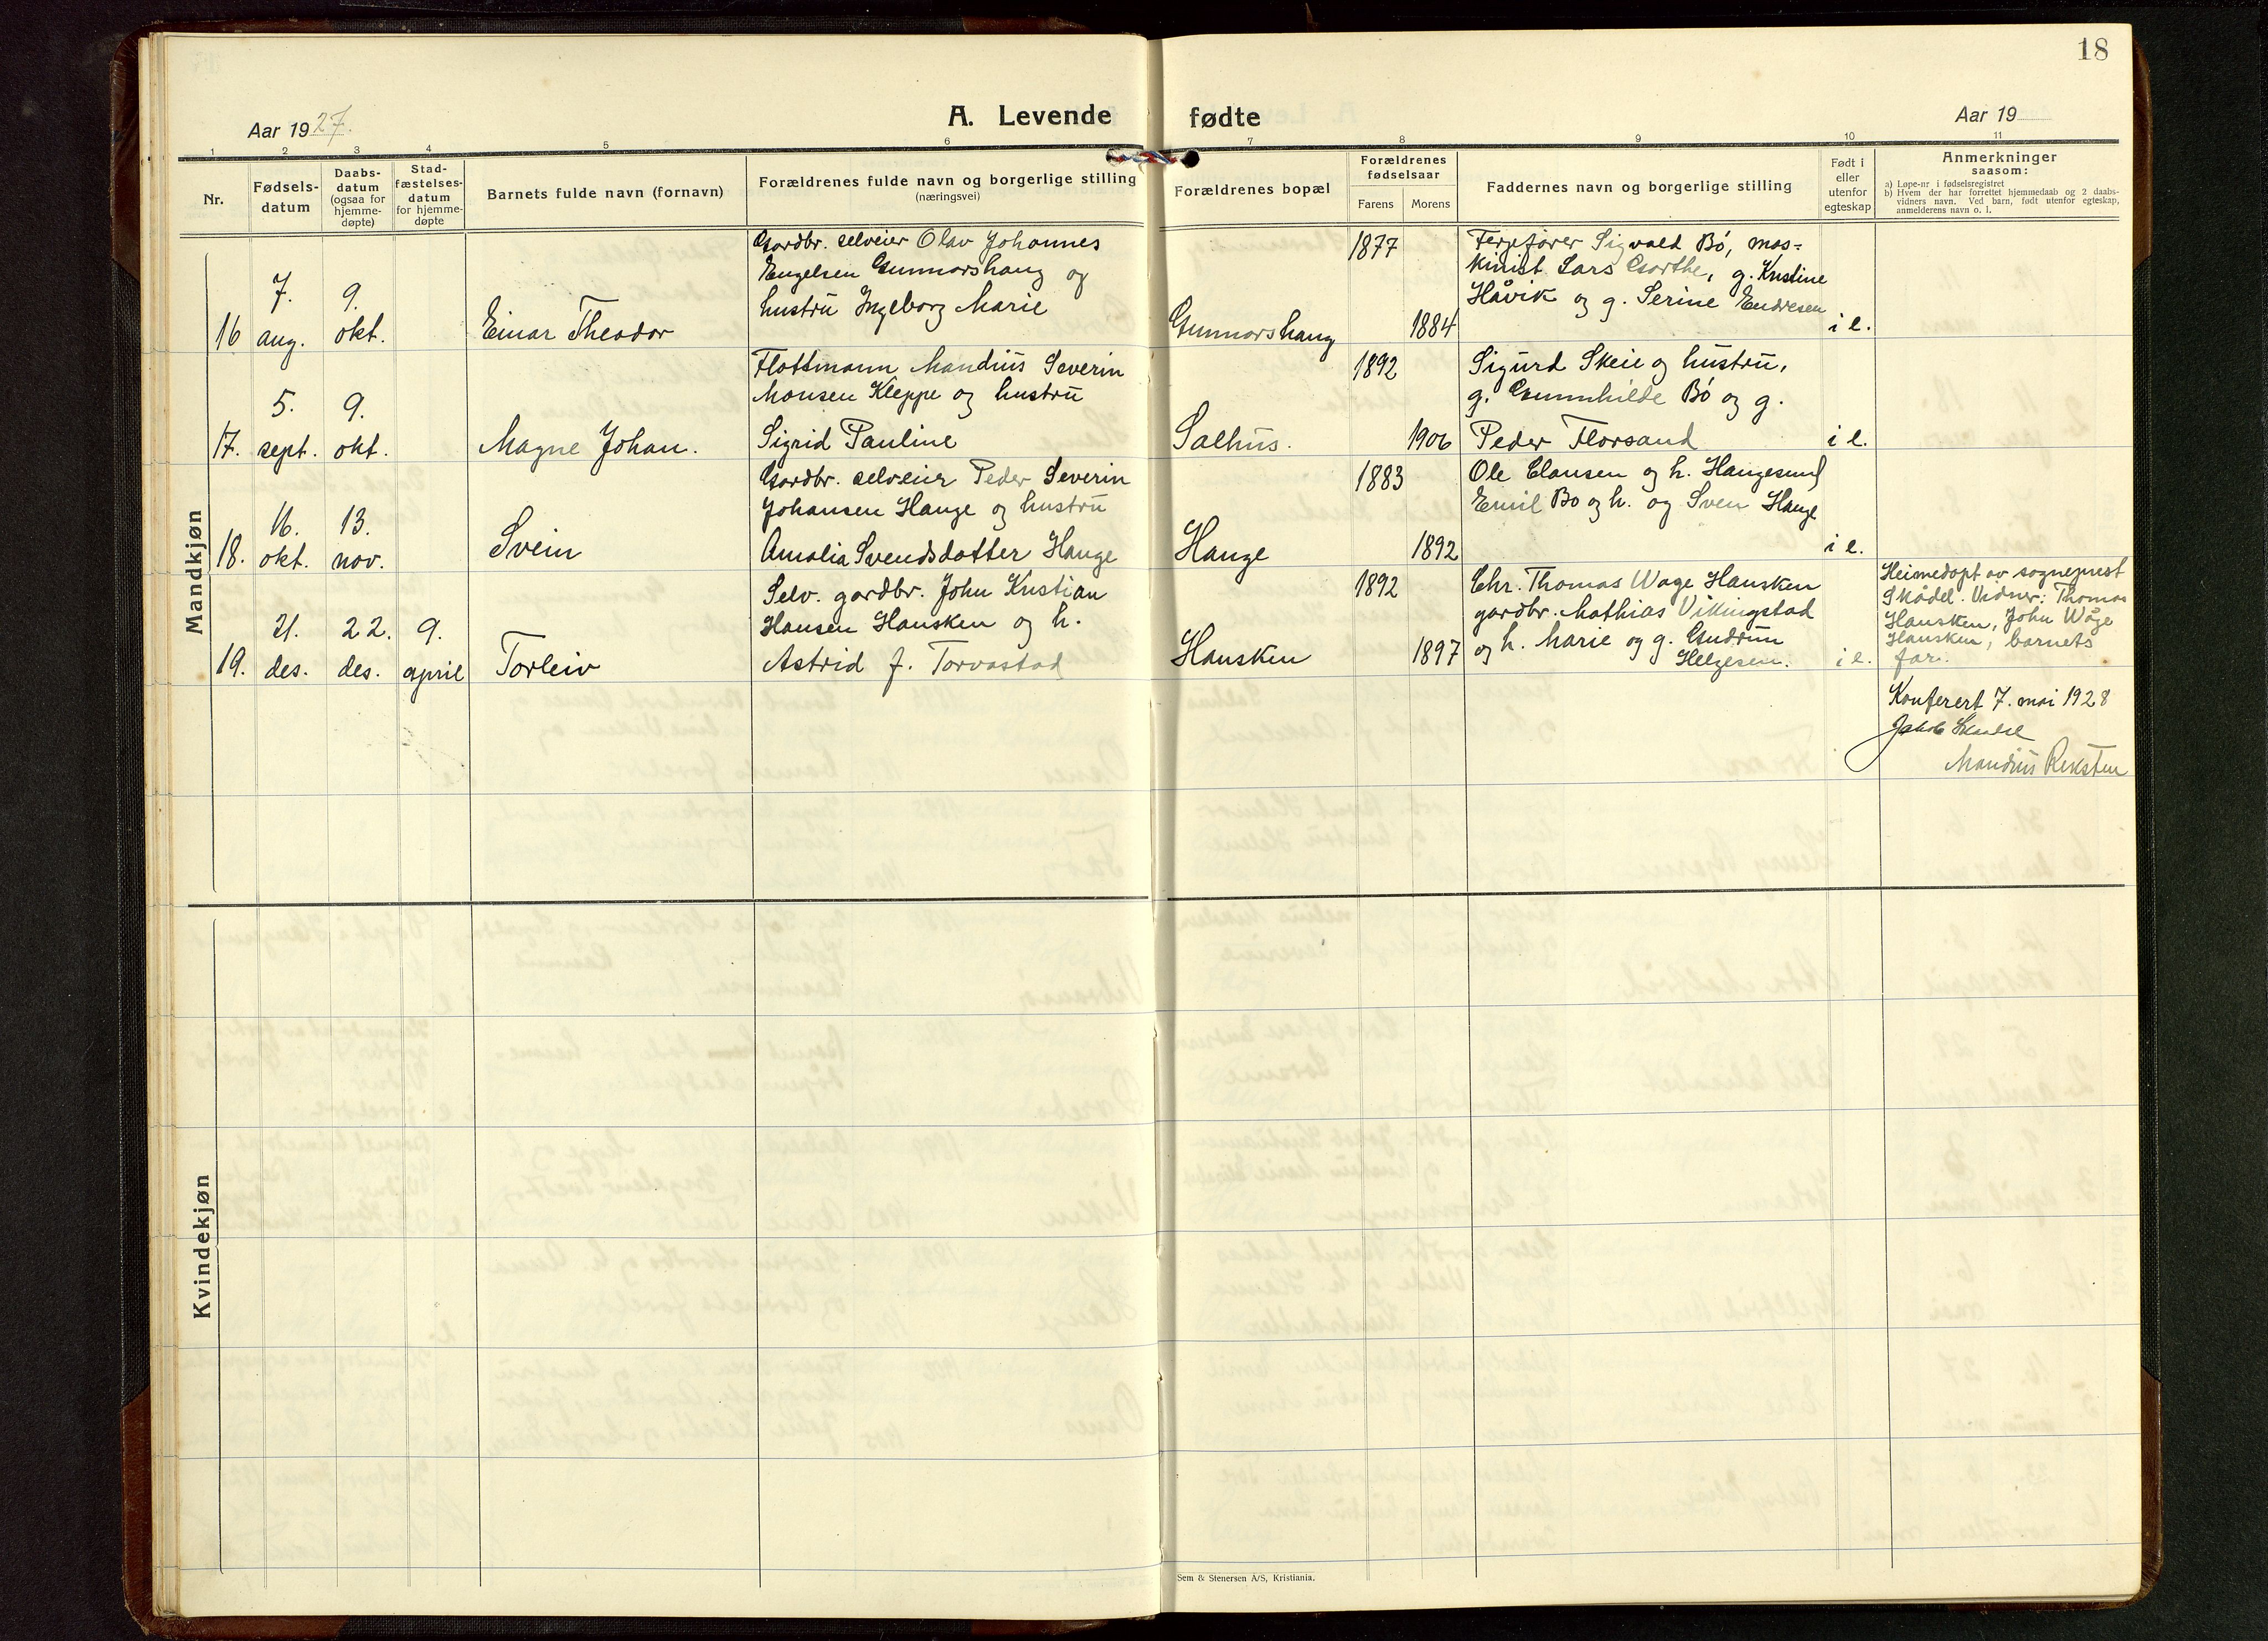 18
A. Levende fødte
Aar 1927.
Aar 19
1 2 3 4 5 6 7 8 9 10 11
Nr.
Fødsels-
datum
Daabs-
datum
(ogsaa for
hjemme-
døpte)
Stad-
fæstelses-
datum
for hjemme-
døpte
Barnets fulde navn (fornavn)
Forældrenes fulde navn og borgerlige stilling
(næringsvei)
Forældrenes bopæl
Forældrenes
fødselsaar
Farens Morens
Faddernes navn og borgerlige stilling
Født i
eller
utenfor
egteskap
Anmerkninger
saasom:
a) Løpe-nr i fødselsregistret
b) Hvem der har forrettet hjemmedaab og 2 daabs-
vidners navn. Ved barn, født utenfor egteskap,
anmelderens navn o. l.
Mandkjøn
16
7.
aug.
9.
okt.
Einar Theodor
Gardbr. selveier Olav Johannes
Engelsen Gunnarshaug og
hustru Ingeborg Marie
Gunnarshaug
1877
1884
Ferjefører Sigvald Bø, mas-
kinist Lars Garthe, g. Kristine
Håvik og g. Serine Endresen
i e.
17.
5.
sept.
9.
okt.
Magne Johan.
Flottmann Mandius Severin
Monsen Kleppe og hustru
Sigrid Pauline
Salhus.
1892
1906
Sigurd Skeie og hustru,
g. Gunnhilde Bø og g.
Peder Florsand
i e.
18.
16.
okt.
13.
nov.
Svein
Gardbr. selveier Peder Severin
Johansen Hauge og hustru
Amalia Svendsdatter Hauge
Hauge
1883
1892
Ole Clausen og h. Haugesund
Emil Bø og h. og Sven Hauge
i e.
19.
21.
des.
22.
des.
9.
april
Torleiv
Selv. gardbr. John Kristian
Hansen Hausken og h.
Astrid f. Torvastad
Hausken
1892
1897
Chr. Thomas Wage Hausken
gardbr. Mathias Vikingstad
og h. Marie og g. Gudrun
Helgesen.
i e.
Heimedøpt av sogneprest
Skådel. Vidner: Thomas
Hausken, John Wåge
Hausken, barnets
far.
Konferert 7. mai 1928
Jakob Skaadel
Mandius Reksten
Kvindekjøn
Sem & Stenersen A/S, Kristiania.